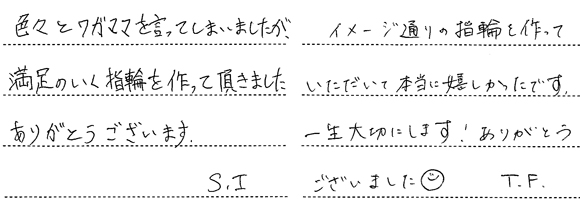 色々とワガママを言ってしまいましたが、
満足のいく指輪を作って頂きました
ありがとうございます.
S.I
イメージ通りの指輪を作って
いただいて本当に嬉しかったです.
一生大切にします!ありがとう
ございました☺ T.F.